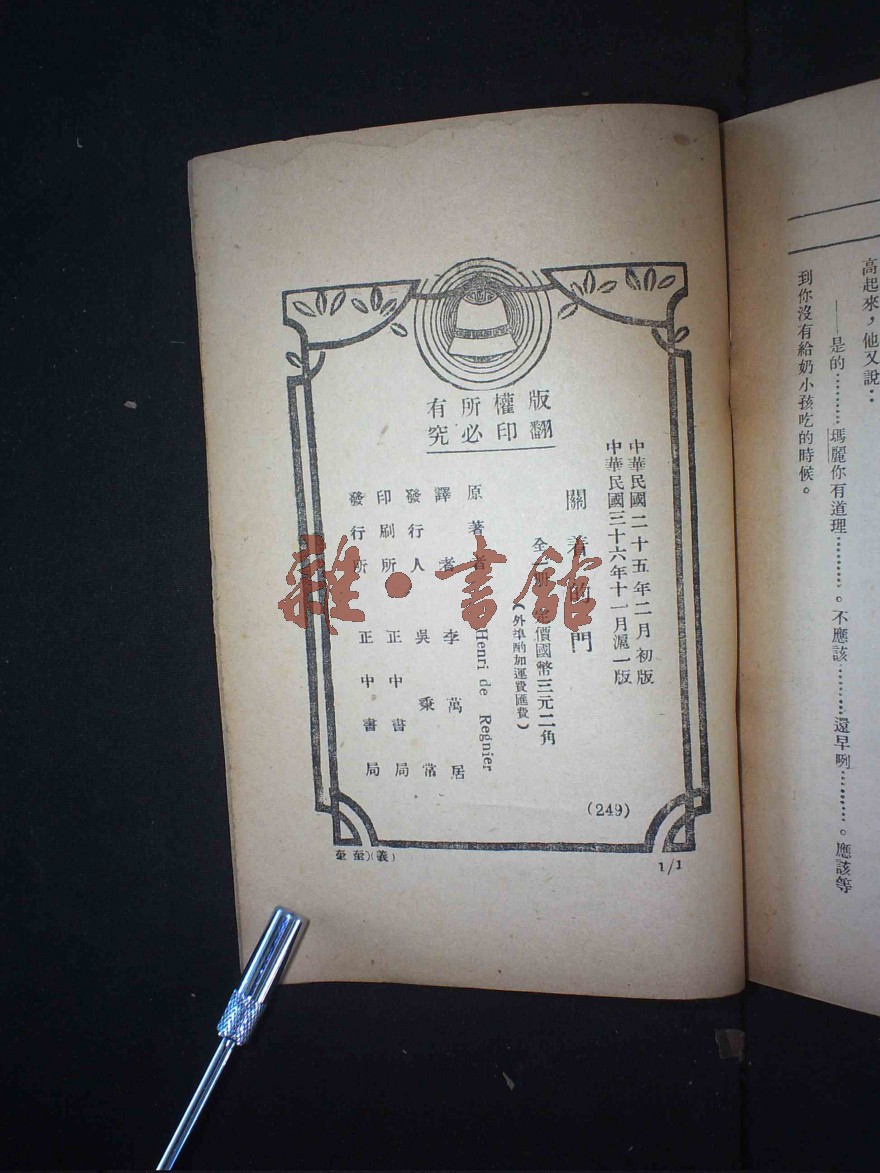 高起來，他又說：
——是的…………瑪麗你有道理…………。不應該…………還早咧…………。應該等
到你沒有給奶小孩吃的時候。
版權所有
翻印必究
中華民國二十五年二月初版
中華民國三十六年十一月滬一版
關着的門
全一册　定價國幣三元二角
（外埠酌加運費匯費）
原著者　Henri de Regnier
譯者　李萬居
發行人　吳秉常
印刷所　正中書局
發行所　正中書局
(249)
1/1
(義)
雜·書館